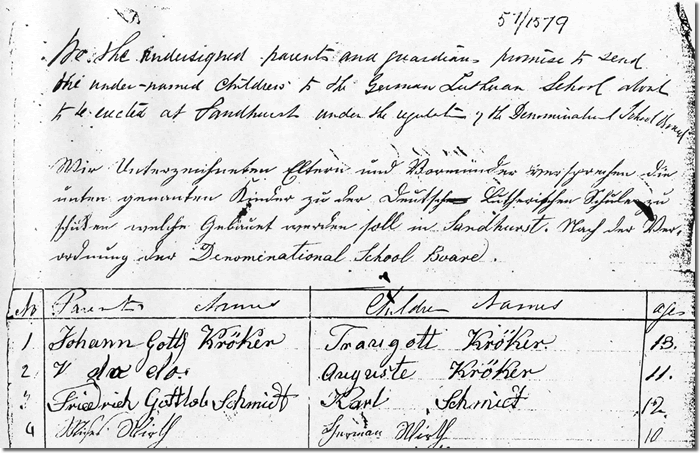 57/1579
We the undersigned parents and guardians promise to send
the under-named children to the German Lutheran School about
to be erected at Sandhurst under the regulat of the Denominational School Board
Wir Unterzeichneten Eltern und Vormünder versprechen die
unten genanten Kinder zu der Deutsch Lutherischen Schule zu
schiken welche Gebauet werden soll in Sandhurst. Nach der Ver-
ordnung der Denominational School Board.
No Parents Names Children Names ages
1 Johann Gottf Kröker Traugott Kröker 13.
2 do do. Auguste Kröker 11.
3 Friedrich Gottlob Schmidt Karl Schmidt 12.
4 Wirth Herman Wirth 10